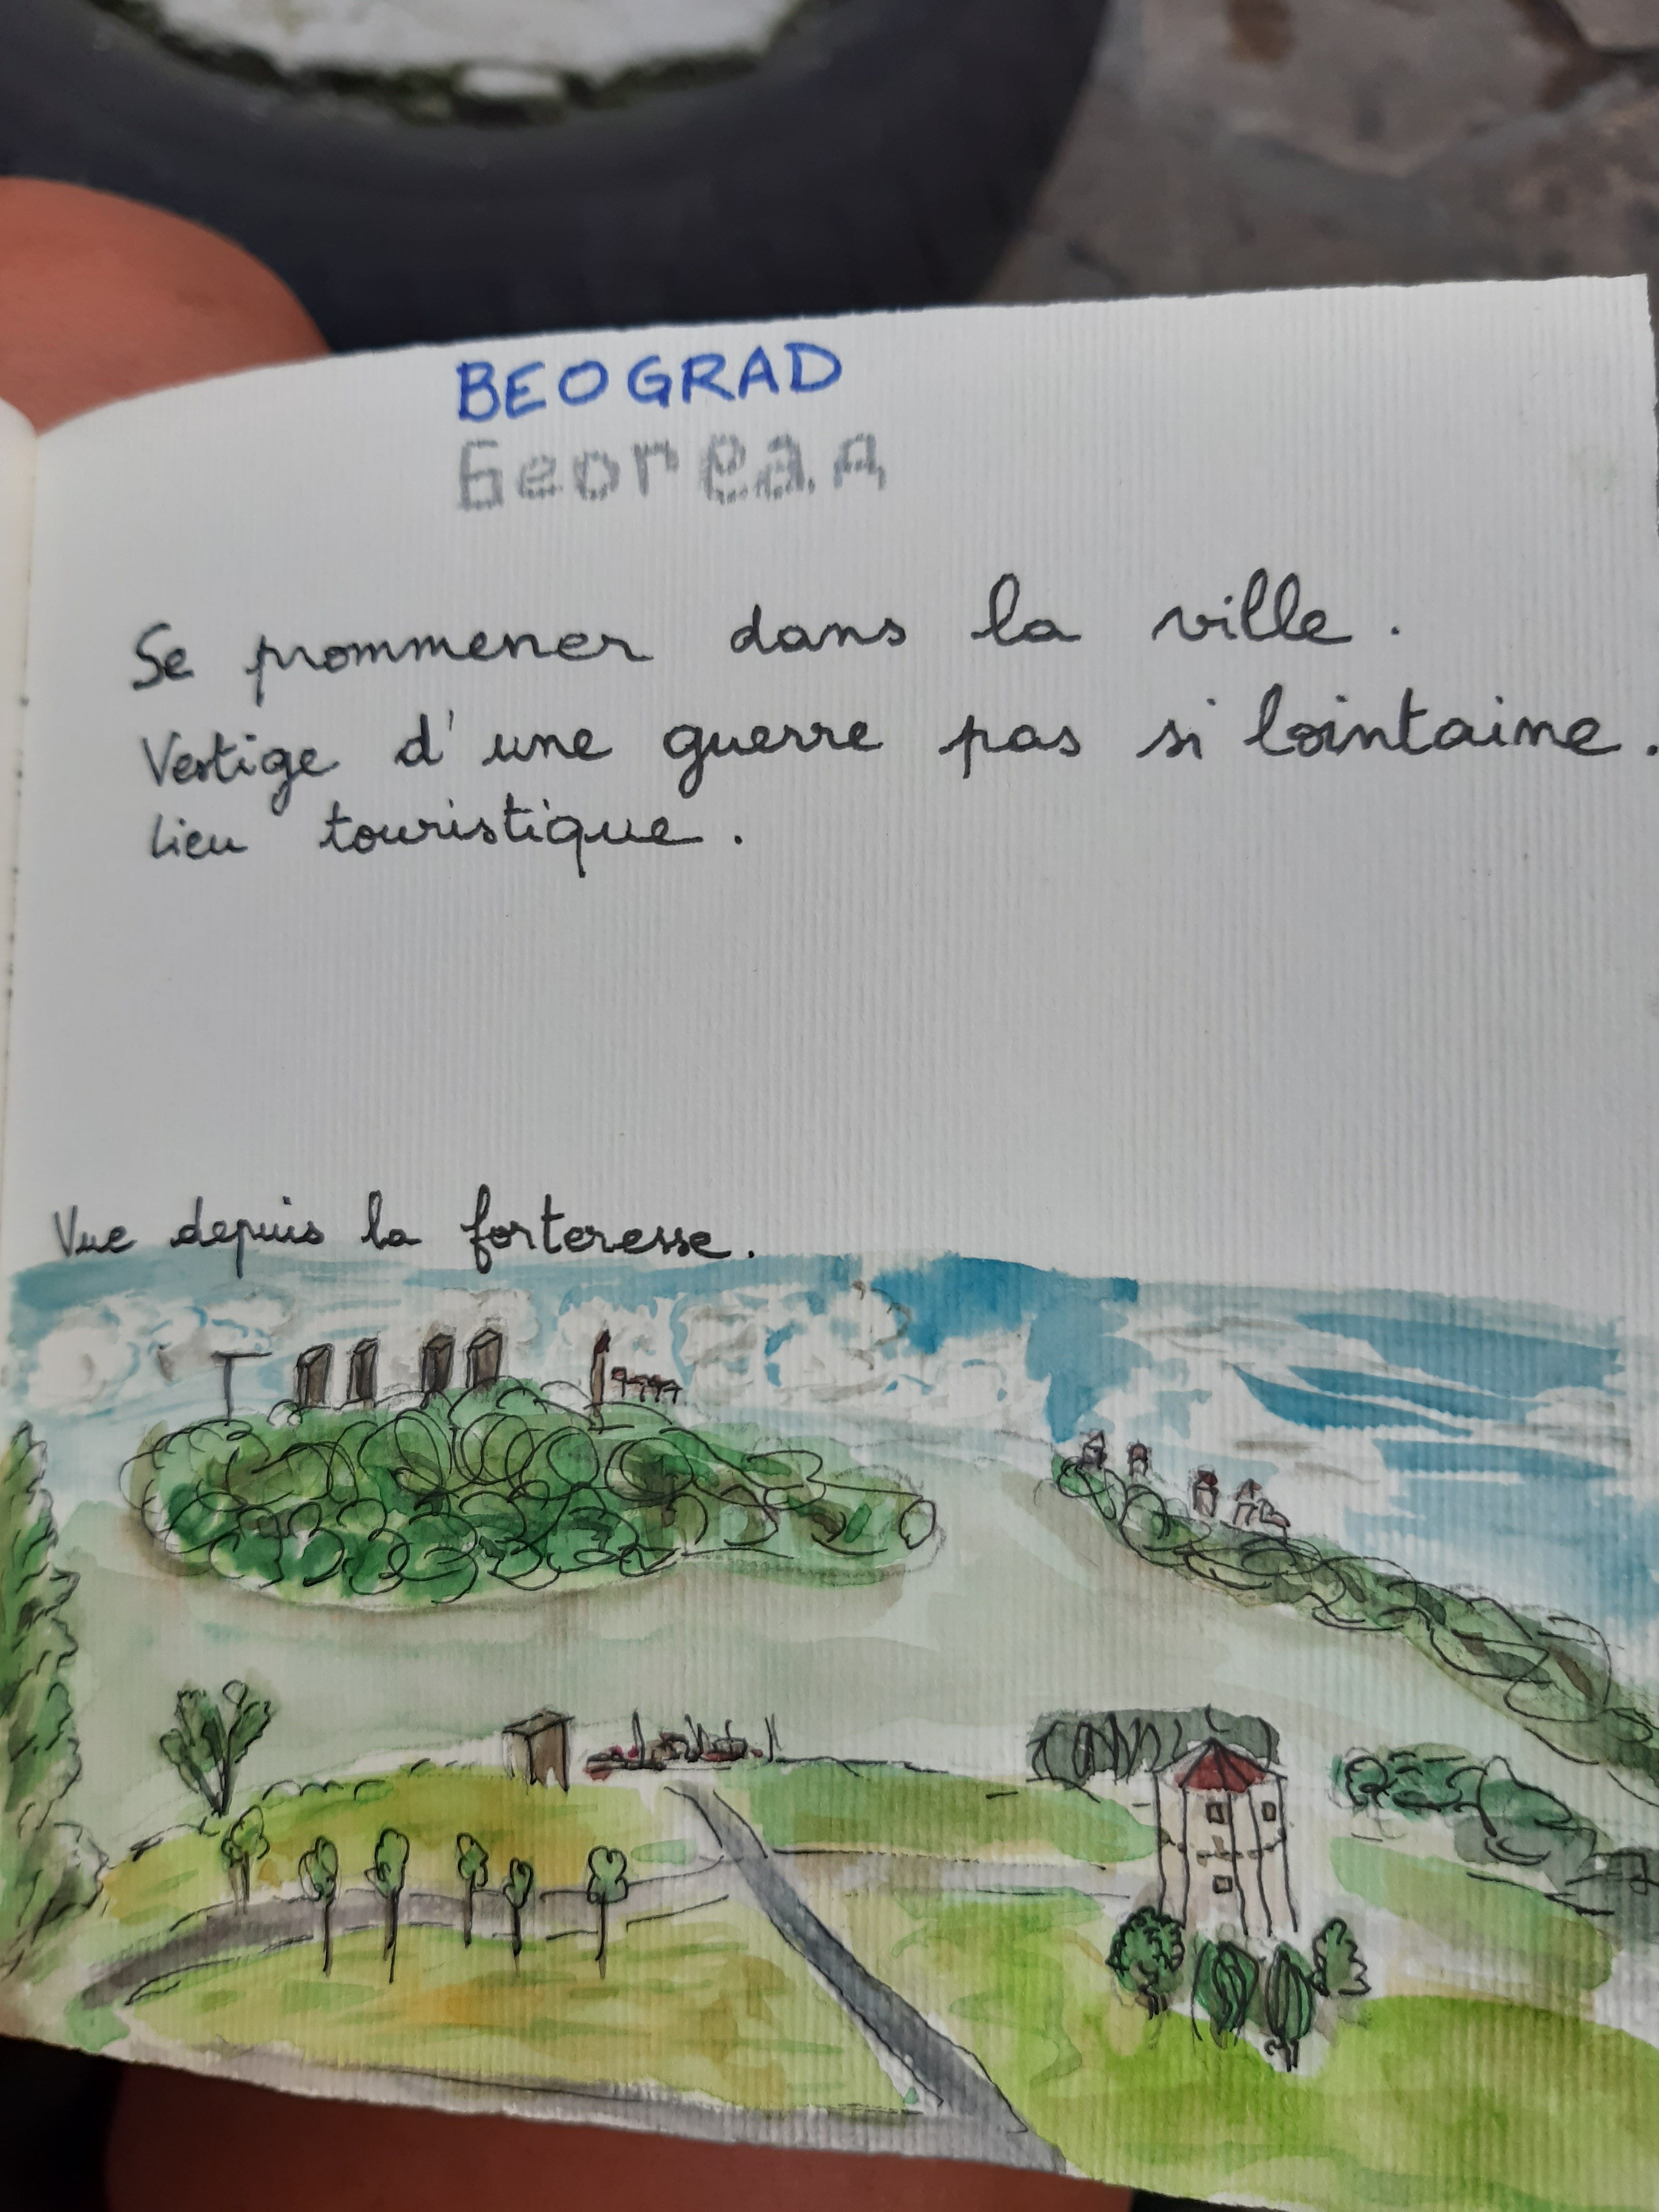 BEOGRAD
Београд
Se prommener dans la ville.
Vestige d'une guerre pas si lointaine.
Lieu touristique.
Vue depuis la forteresse.